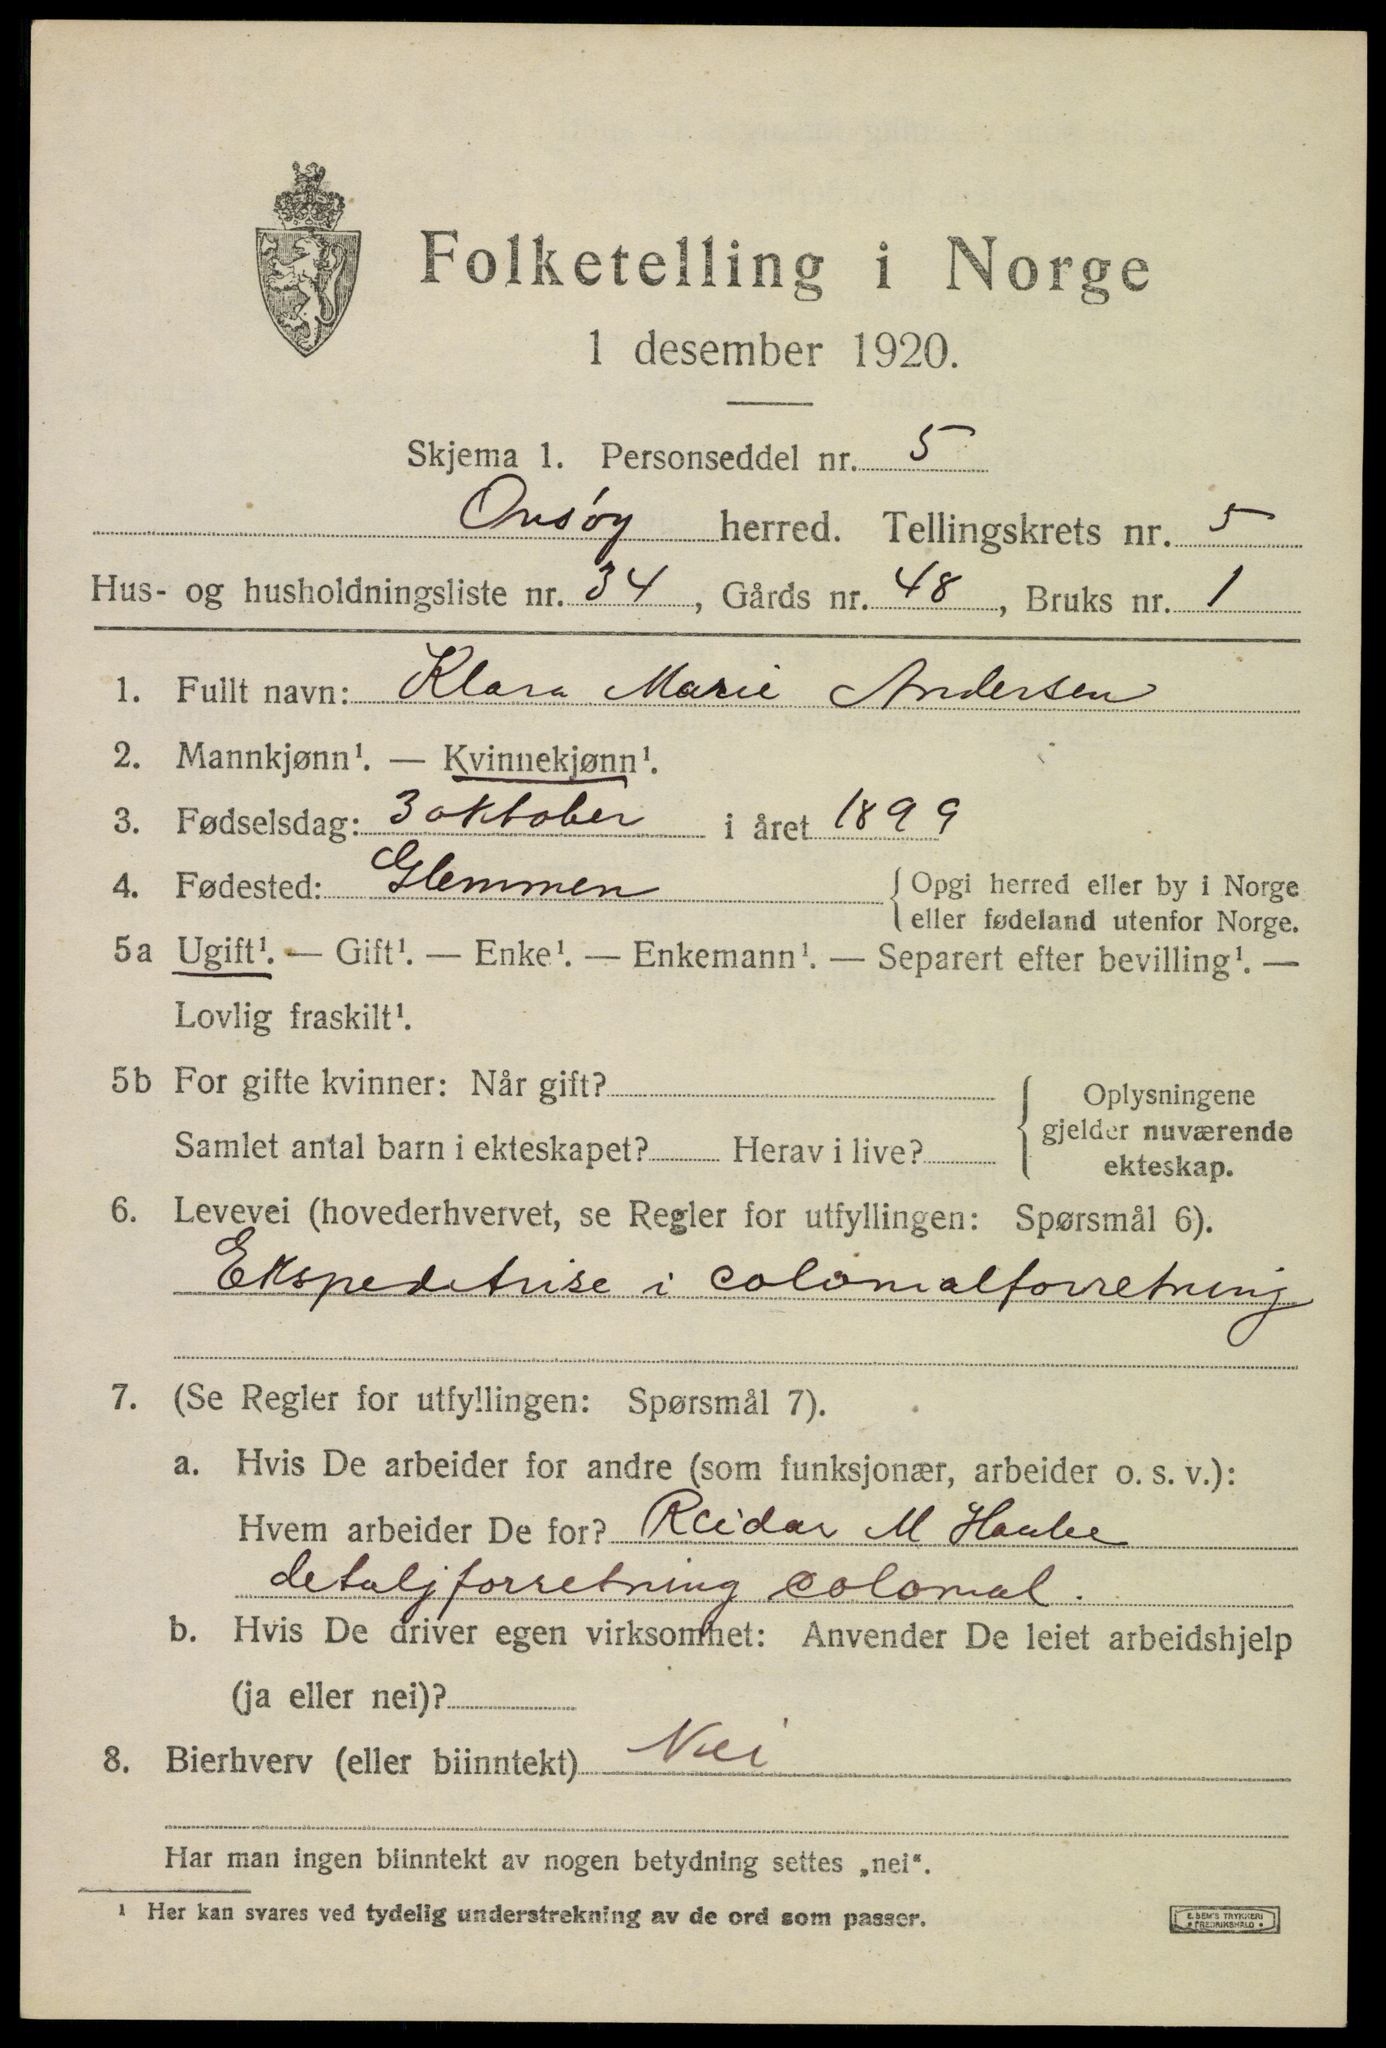 Folketelling i Norge
1 desember 1920.
Skjema 1. Personseddel nr. 5
Onsøy herred. Tellingskrets nr. 5
Hus- og husholdningsliste nr. 34, Gårds nr. 48, Bruks nr. 1
1. Fullt navn: Klara Marie Andersen
2. Mannkjønn¹. — Kvinnekjønn¹.
3. Fødselsdag: 3 oktober i året 1899
4. Fødested: Glemmen { Opgi herred eller by i Norge
eller fødeland utenfor Norge.
5a Ugift¹. — Gift¹. — Enke¹. — Enkemann¹. — Separert efter bevilling¹. —
Lovlig fraskilt¹.
5b For gifte kvinner: Når gift?
Samlet antal barn i ekteskapet? Herav i live?
{ Oplysningene
gjelder nuværende
ekteskap.
6. Levevei (hovederhvervet, se Regler for utfyllingen: Spørsmål 6).
Ekspeditrise i colonialforretning
7. (Se Regler for utfyllingen: Spørsmål 7).
a. Hvis De arbeider for andre (som funksjonær, arbeider o. s. v.):
Hvem arbeider De for? Reidar M
detaljforretning colonial.
b. Hvis De driver egen virksomhet: Anvender De leiet arbeidshjelp
(ja eller nei)?
8. Bierhverv (eller biinntekt) Nei
Har man ingen biinntekt av nogen betydning settes „nei“.
¹ Her kan svares ved tydelig understrekning av de ord som passer.
E. SEM'S TRYKKERI
• FREDRIKSHALD •